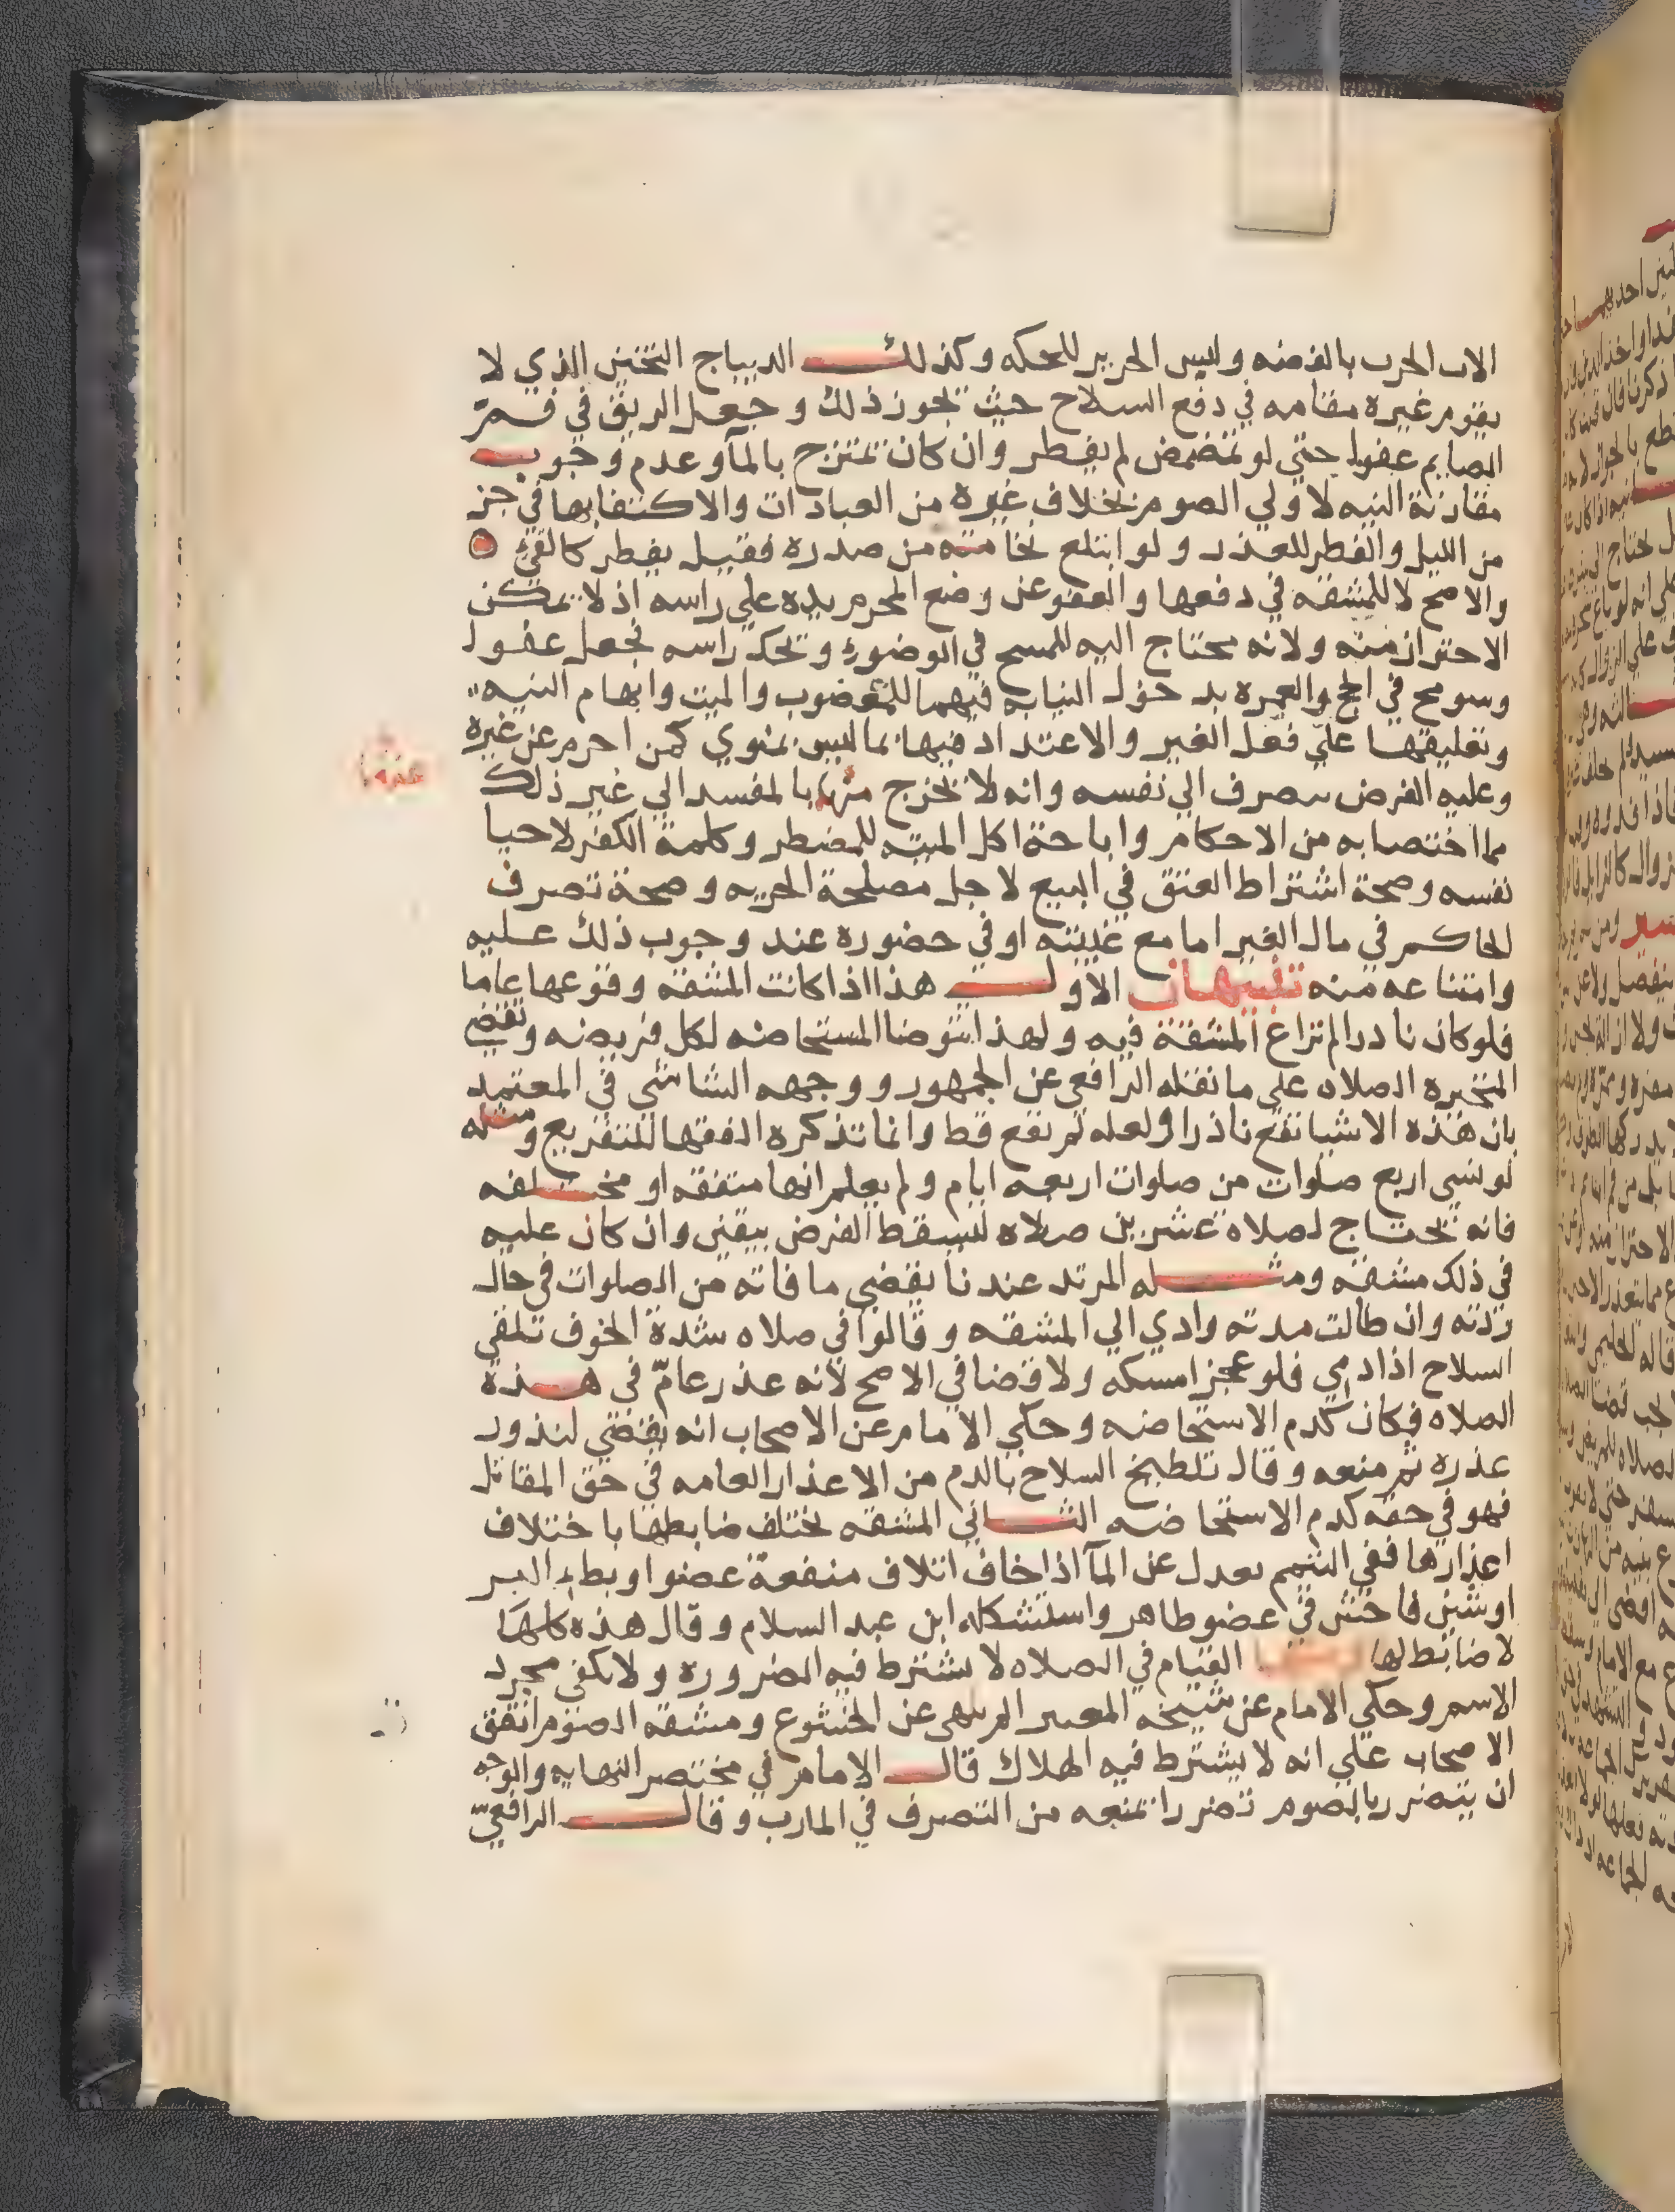 الات الحرب بالفضه ولبس الحرير للحكه وكذلك الديباج الثخين الذي لا
يقوم غيره مقامه في دفع السلاح حيث يجوز ذلك وجعل الريق في فم
الصايم عفوا حتي لو تمضمض لم يفطر وان كان يمتزج بالمآ وعدم وجوب
مقارنة النيه لاولي الصوم بخلاف غيره من العبادات والاكتفا بها في جز
من الليل والفطر للعذر ولو ابتلع نخامته من صدره فقيل يفطر كالقئ
والاصح لا للمشقه في دفعها والعفو عن وضع المحرم يده علي راسه اذ لا يمكن
الاحتراز منه ولانه يحتاج اليه للمسح في الوضوء وبحك راسه فجعل عفوا
وسومح في الحج والعمره بدخول النيابه فيهما للمعضوب والميت وابهام النيه
وتعليقها علي فعل الغير والاعتداد فيها بما ليس بمنوي كمن احرم عن غيره
وعليه الفرض ينصرف الي نفسه وانه لا يخرج منها بالمفسد الي غير ذلك
مما اختصا به من الاحكام واباحة اكل الميته للمضطر وكلمة الكفر لاحيا
نفسه وصحة اشتراط العتق في البيع لاجل مصلحة الحريه وصحة تصرف
الحاكم في مال الغير اما مع غيبته او في حضوره عند وجوب ذلك عليه
وامتناعه منه تنبيهان الاول هذا اذا كانت المشقه وقوعها عاما
فلو كان نادرا لم تراع المشقة فيه ولهذا تتوضا المستحاضه لكل فريضه وتقضي
المتحيره الصلاه علي ما نقله الرافعي عن الجمهور ووجهه الشاشي في المعتمد
بان هذه الاشيا تقع نادرا ولعله لم تقع قط وانما تذكره الفقها للتفريع ومثله
لو نسي اربع صلوات من صلوات اربعه ايام ولم يعلم انها متفقه او مختلفه
فانه يحتاج لصلاه عشرين صلاه ليسقط الفرض بيقين وان كان عليه
في ذلك مشقه ومثله المرتد عندنا يقضي ما فاته من الصلوات في حال
ردته وان طالت مدته وادي الي المشقه وقالوا في صلاه شدة الخوف تلقي
السلاح اذا دمي فلو عجز امسكه ولا قضا في الاصح لانه عذر عامّ في هذه
الصلاه فكان كدم الاستحاضه وحكي الامام عن الاصحاب انه يقضي لندور
عذره ثم منعه وقال تلطيخ السلاح بالدم من الاعذار العامه في حق المقاتل
فهو في حقه كدم الاستحاضه الثاني المشقه يختلف ضابطها باختلاف
اعذارها ففي التيمم يعدل عن المآ اذا خاف اتلاف منفعة عضو او بطء البر
او شين فاحش في عضو ظاهر واستشكله ابن عبد السلام وقال هذه كلها
لا ضابط لها القيام في الصلاه لا يشترط فيه الضروره ولا يكفي مجرد
الاسم وحكي الامام عن شيخه المعتبر المرالملهي عن الخشوع ومشقه الصوم اتفق
الاصحاب علي انه لا يشترط فيه الهلاك قال الامام في مختصر النهايه والوجه
ان يتضرر بالصوم تضررا يمنعه من التصرف في المارب وقال الرافعي